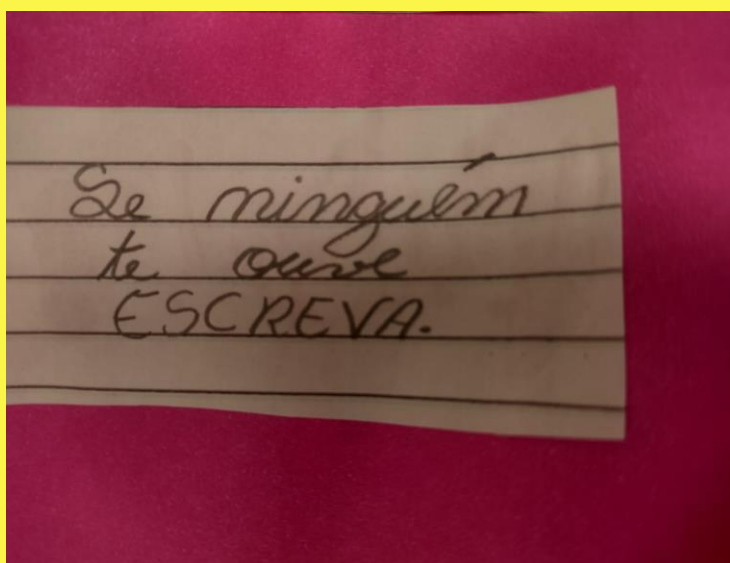 Se ninguém
te ouve
ESCREVA.